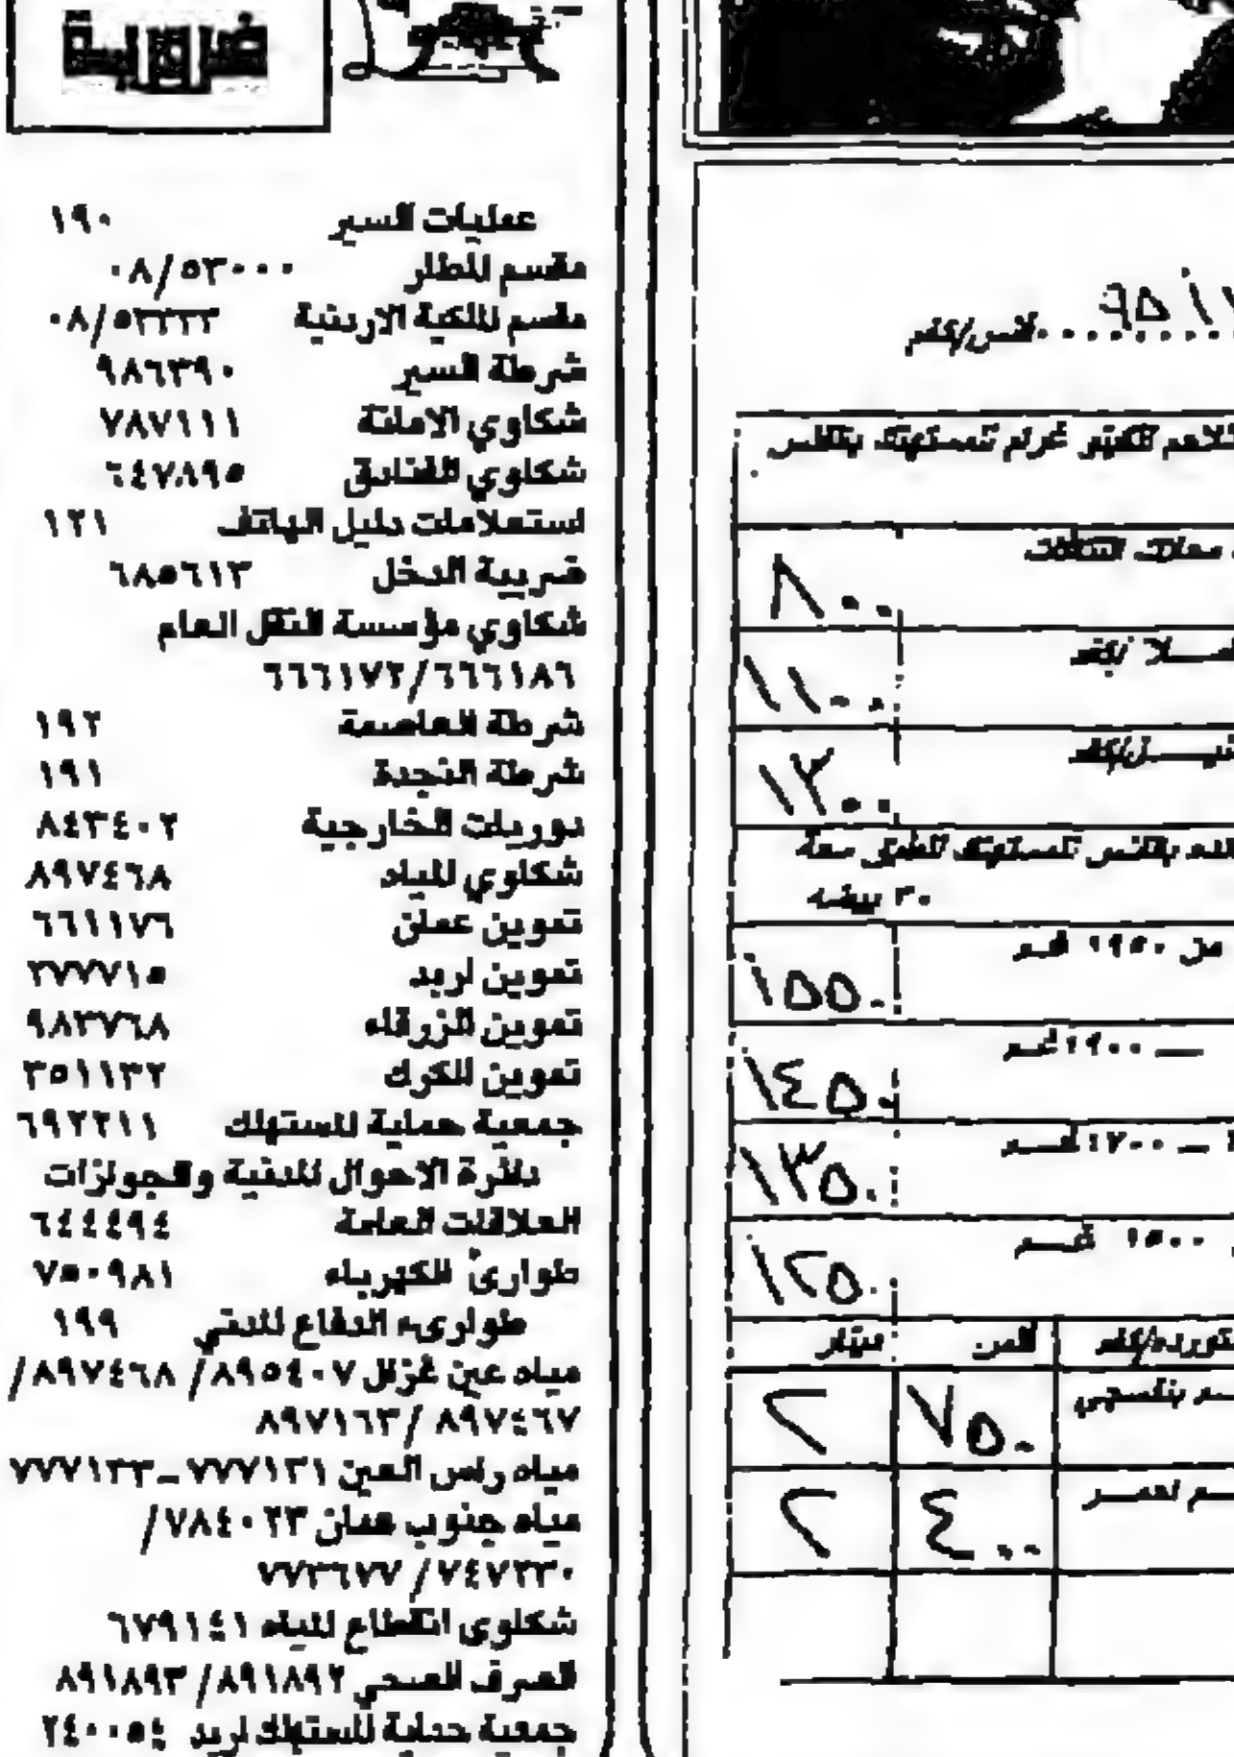 ضرورية
عمليات السير ١٩٠
مقسم المطار ٠٨/٥٣٠٠٠
مقسم الملكية الاردنية ٠٨/٥٣٢٢٢
شرطة السير ٩٨٦٣٩٠
شكاوي الامانة ٧٨٧١١١
شكاوي الفنادق ٦٤٧٨٩٥
استعلامات دليل الهاتف ١٢١
ضريبة الدخل ٦٨٥٦١٣
شكاوي مؤسسة النقل العام
٦٦٦١٧٢/٦٦٦١٨٦
شرطة العاصمة ١٩٢
شرطة النجدة ١٩١
دوريات الخارجية ٨٤٣٤٠٢
شكاوي المياه ٨٩٧٤٦٨
تموين عمان ٦٦١١٧٦
تموين اربد ٢٧٧٧١٥
تموين الزرقاء ٩٨٣٧٦٨
تموين الكرك ٣٥١١٣٢
جمعية حماية المستهلك ٦٩٢٢١١
دائرة الاحوال المدنية والجوازات
العلاقات العامة ٦٤٤٤٩٤
طوارئ الكهرباء ٧٥٠٩٨١
طوارىء الدفاع المدني ١٩٩
مياه عين غزال ٨٩٥٤٠٧/ ٨٩٧٤٦٨/
٨٩٧٤٦٧ /٨٩٧١٦٣
مياه راس العين ٧٧٧١٣١_٧٧٧١٣٣
مياه جنوب عمان ٧٨٤٠٢٣/
٧٤٧٣٣٠ /٧٧٣٦٧٧
شكاوى انقطاع المياه ٦٧٩١٤١
الصرف الصحي ٨٩١٨٩٢/ ٨٩١٨٩٣
جمعية حماية المستهلك اربد ٢٤٠٠٥٤
فلس/كغم
للمستهلك بالفلس
٨٠٠
١١٠٠
١٣٠٠
بالفلس للمستهلك للطبق سعة
٣٠ بيضه
من ١٩٥٠ غم ١٥٥٠
— ١٩٠٠ غم ١٤٥٠
— ١٧٠٠ غم ١٣٥٠
١٥٠٠ غم ١٢٥٠
فلس دينار
٧٥٠ ٢
احمر ٤٠٠ ٢